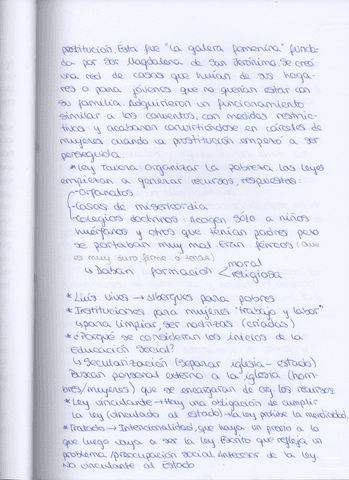 prostitución. Ésta fue "la galera femenina" funda-
da por Sor Magdalena de San Jerónimo. Se creó
una red de casas que huían de sus hoga-
res o para jóvenes que no querían estar con
su familia. Adquirieron un funcionamiento
similar a los conventos, con medidas restric-
tivas y acabaron convirtiéndose en cárceles de
mujeres cuando la prostitución empezó a ser
perseguida.
*Ley Tavera: organizar la pobreza. Las leyes
empiezan a generar recursos, respuestas:
-Orfanatos
-Casas de misericordia
-Colegios doctrinos: Acogen sólo a niños
huérfanos y otros que tenían padres pero
se portaban muy mal. Eran férreos (que
es muy duro, firme o tenaz)
↳ Daban formación moral
religiosa
*Luis Vives → Albergues para pobres
*Instituciones para mujeres "trabajo y labor"
↳ para limpiar, ser nodrizas (criadas)
*¿Porqué se consideran los inicios de la
Educación Social?
↳ Secularización (separar iglesia-estado)
Buscan personal externo a la iglesia (hom-
bres/mujeres) que se encargaran de org. los recursos.
*Ley vinculante → Hay una obligación de cumplir
la ley (vinculado al estado) → la ley prohíbe la mendicidad.
*Tratado → Intencionalidad, que haya un previo a lo
que luego vaya a ser la ley. Escrito que refleja un
problema/preocupación social. Antecesor de la ley.
No vinculante al Estado.